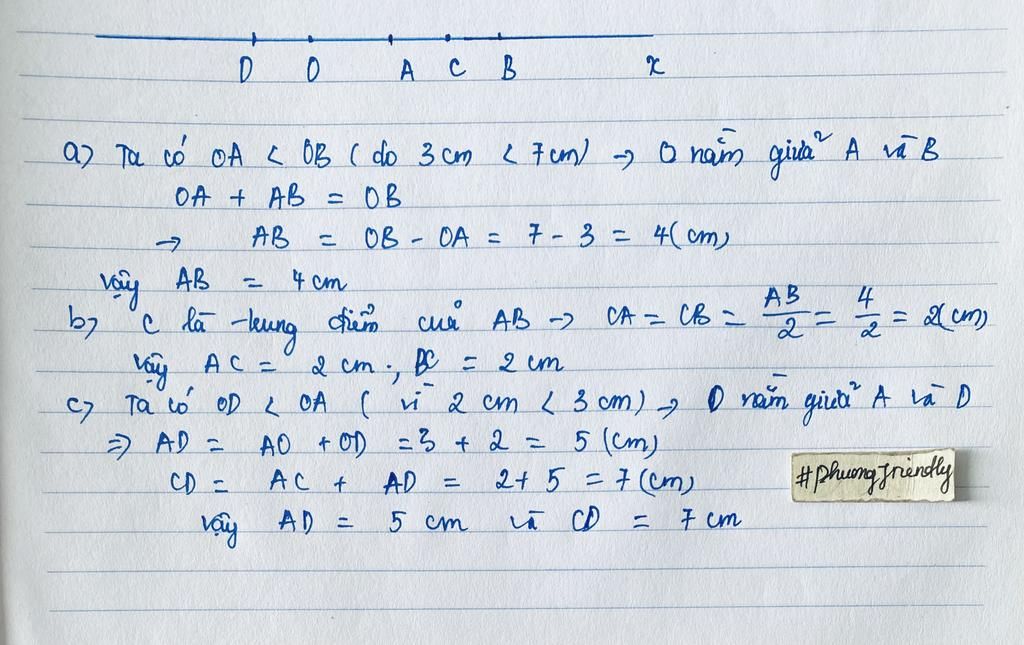 D O A C B x
a) Ta có OA < OB (do 3 cm < 7 cm) → O nằm giữa A và B
OA + AB = OB
→ AB = OB - OA = 7 - 3 = 4 (cm)
vậy AB = 4 cm
b) C là trung điểm của AB → CA = CB = AB/2 = 4/2 = 2 (cm)
vậy AC = 2 cm ; BC = 2 cm
c) Ta có OD < OA (vì 2 cm < 3 cm) → O nằm giữa A và D
⇒ AD = AO + OD = 3 + 2 = 5 (cm)
CD = AC + AD = 2 + 5 = 7 (cm)
vậy AD = 5 cm và CD = 7 cm
#phuongfriendly